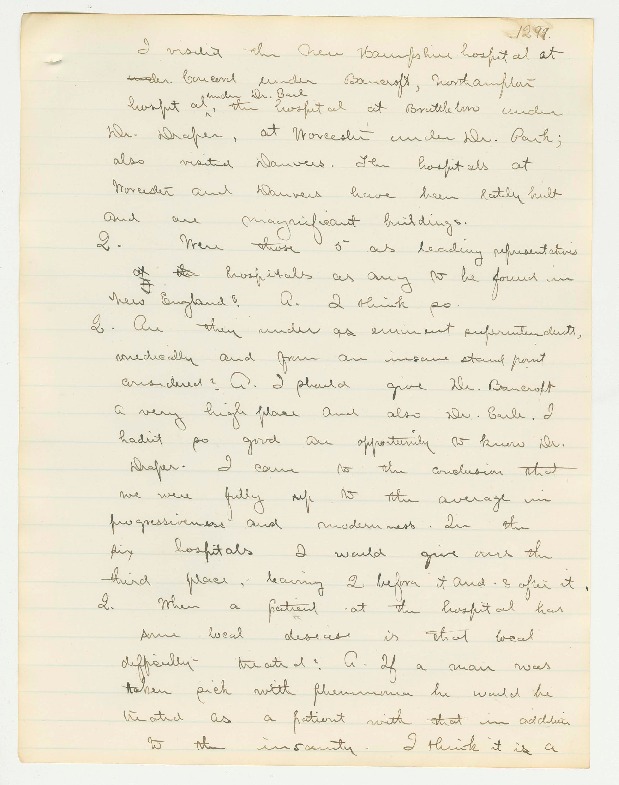 1297.
I visited the New Hampshire hospital at
under Concord under Bancroft, Northampton
under Dr. Earle
hospital, the hospital at Brattleboro under
Dr. Draper, at Worcester under Dr. Park;
also visited Danvers. The hospitals at
Worcester and Danvers have been lately built
and are magnificent buildings.
Q. Were those 5 as leading representatives
of the hospitals as any to be found in
New England? A. I think so.
Q. Are they under as eminent superintendents,
medically and from an insane stand point
considered? A. I should give Dr. Bancroft
a very high place and also Dr. Earle. I
hadn't so good an opportunity to know Dr.
Draper. I came to the conclusion that
we were fully up to the average in
progressiveness and modernness. In the
six hospitals I would give ours the
third place, leaving 2 before it and 3 after it.
Q. When a patient at the hospital has
some local disease is that local
difficulty treated? A. If a man was
taken sick with phenmonia he would be
treated as a patient with that in addition
to the insanity. I think it is a